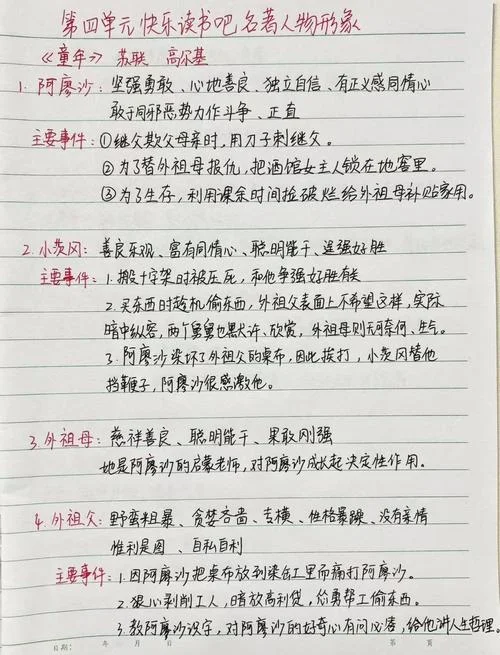 第四单元快乐读书吧名著人物形象
《童年》 苏联 高尔基
1. 阿廖沙：坚强勇敢、心地善良、独立自信、有正义感同情心
敢于同邪恶势力作斗争、正直
主要事件：①继父欺父母亲时，用刀子刺继父。
②为了替外祖母报仇，把酒馆女主人锁在地窖里。
③为了生存，利用课余时间捡破烂给外祖母补贴家用。
2. 小茨冈：善良乐观、富有同情心、聪明能干、逞强好胜
主要事件：1. 搬十字架时被压死，和他争强好胜有关
2. 买东西时趁机偷东西，外祖父表面上不希望这样，实际
暗中纵容，两个舅舅也默许、欣赏，外祖母则无可奈何、生气。
3. 阿廖沙染坏了外祖父的桌布，因此挨打，小茨冈替他
挡鞭子，阿廖沙很感激他。
3. 外祖母：慈祥善良、聪明能干、果敢刚强
她是阿廖沙的启蒙老师，对阿廖沙成长起决定性作用。
4. 外祖父：野蛮粗暴、贪婪吝啬、专横、性格暴躁、没有亲情
惟利是图、自私自利
主要事件：1. 因阿廖沙把桌布放到染缸里而痛打阿廖沙。
2. 狠心剥削工人，暗放高利贷，怂勇帮工偷东西。
3. 教阿廖沙识字，对阿廖沙的好奇心有问必答，给他讲人生哲理。
日期： 年 月 日 第 页